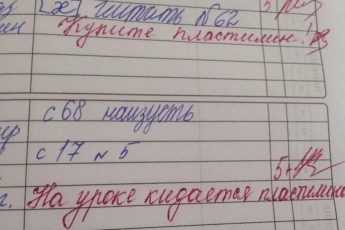 [æ] читать №62
Купите пластилин!
с 68 наизусть
с 17 № 5
5+
г. На уроке кидается пластилин